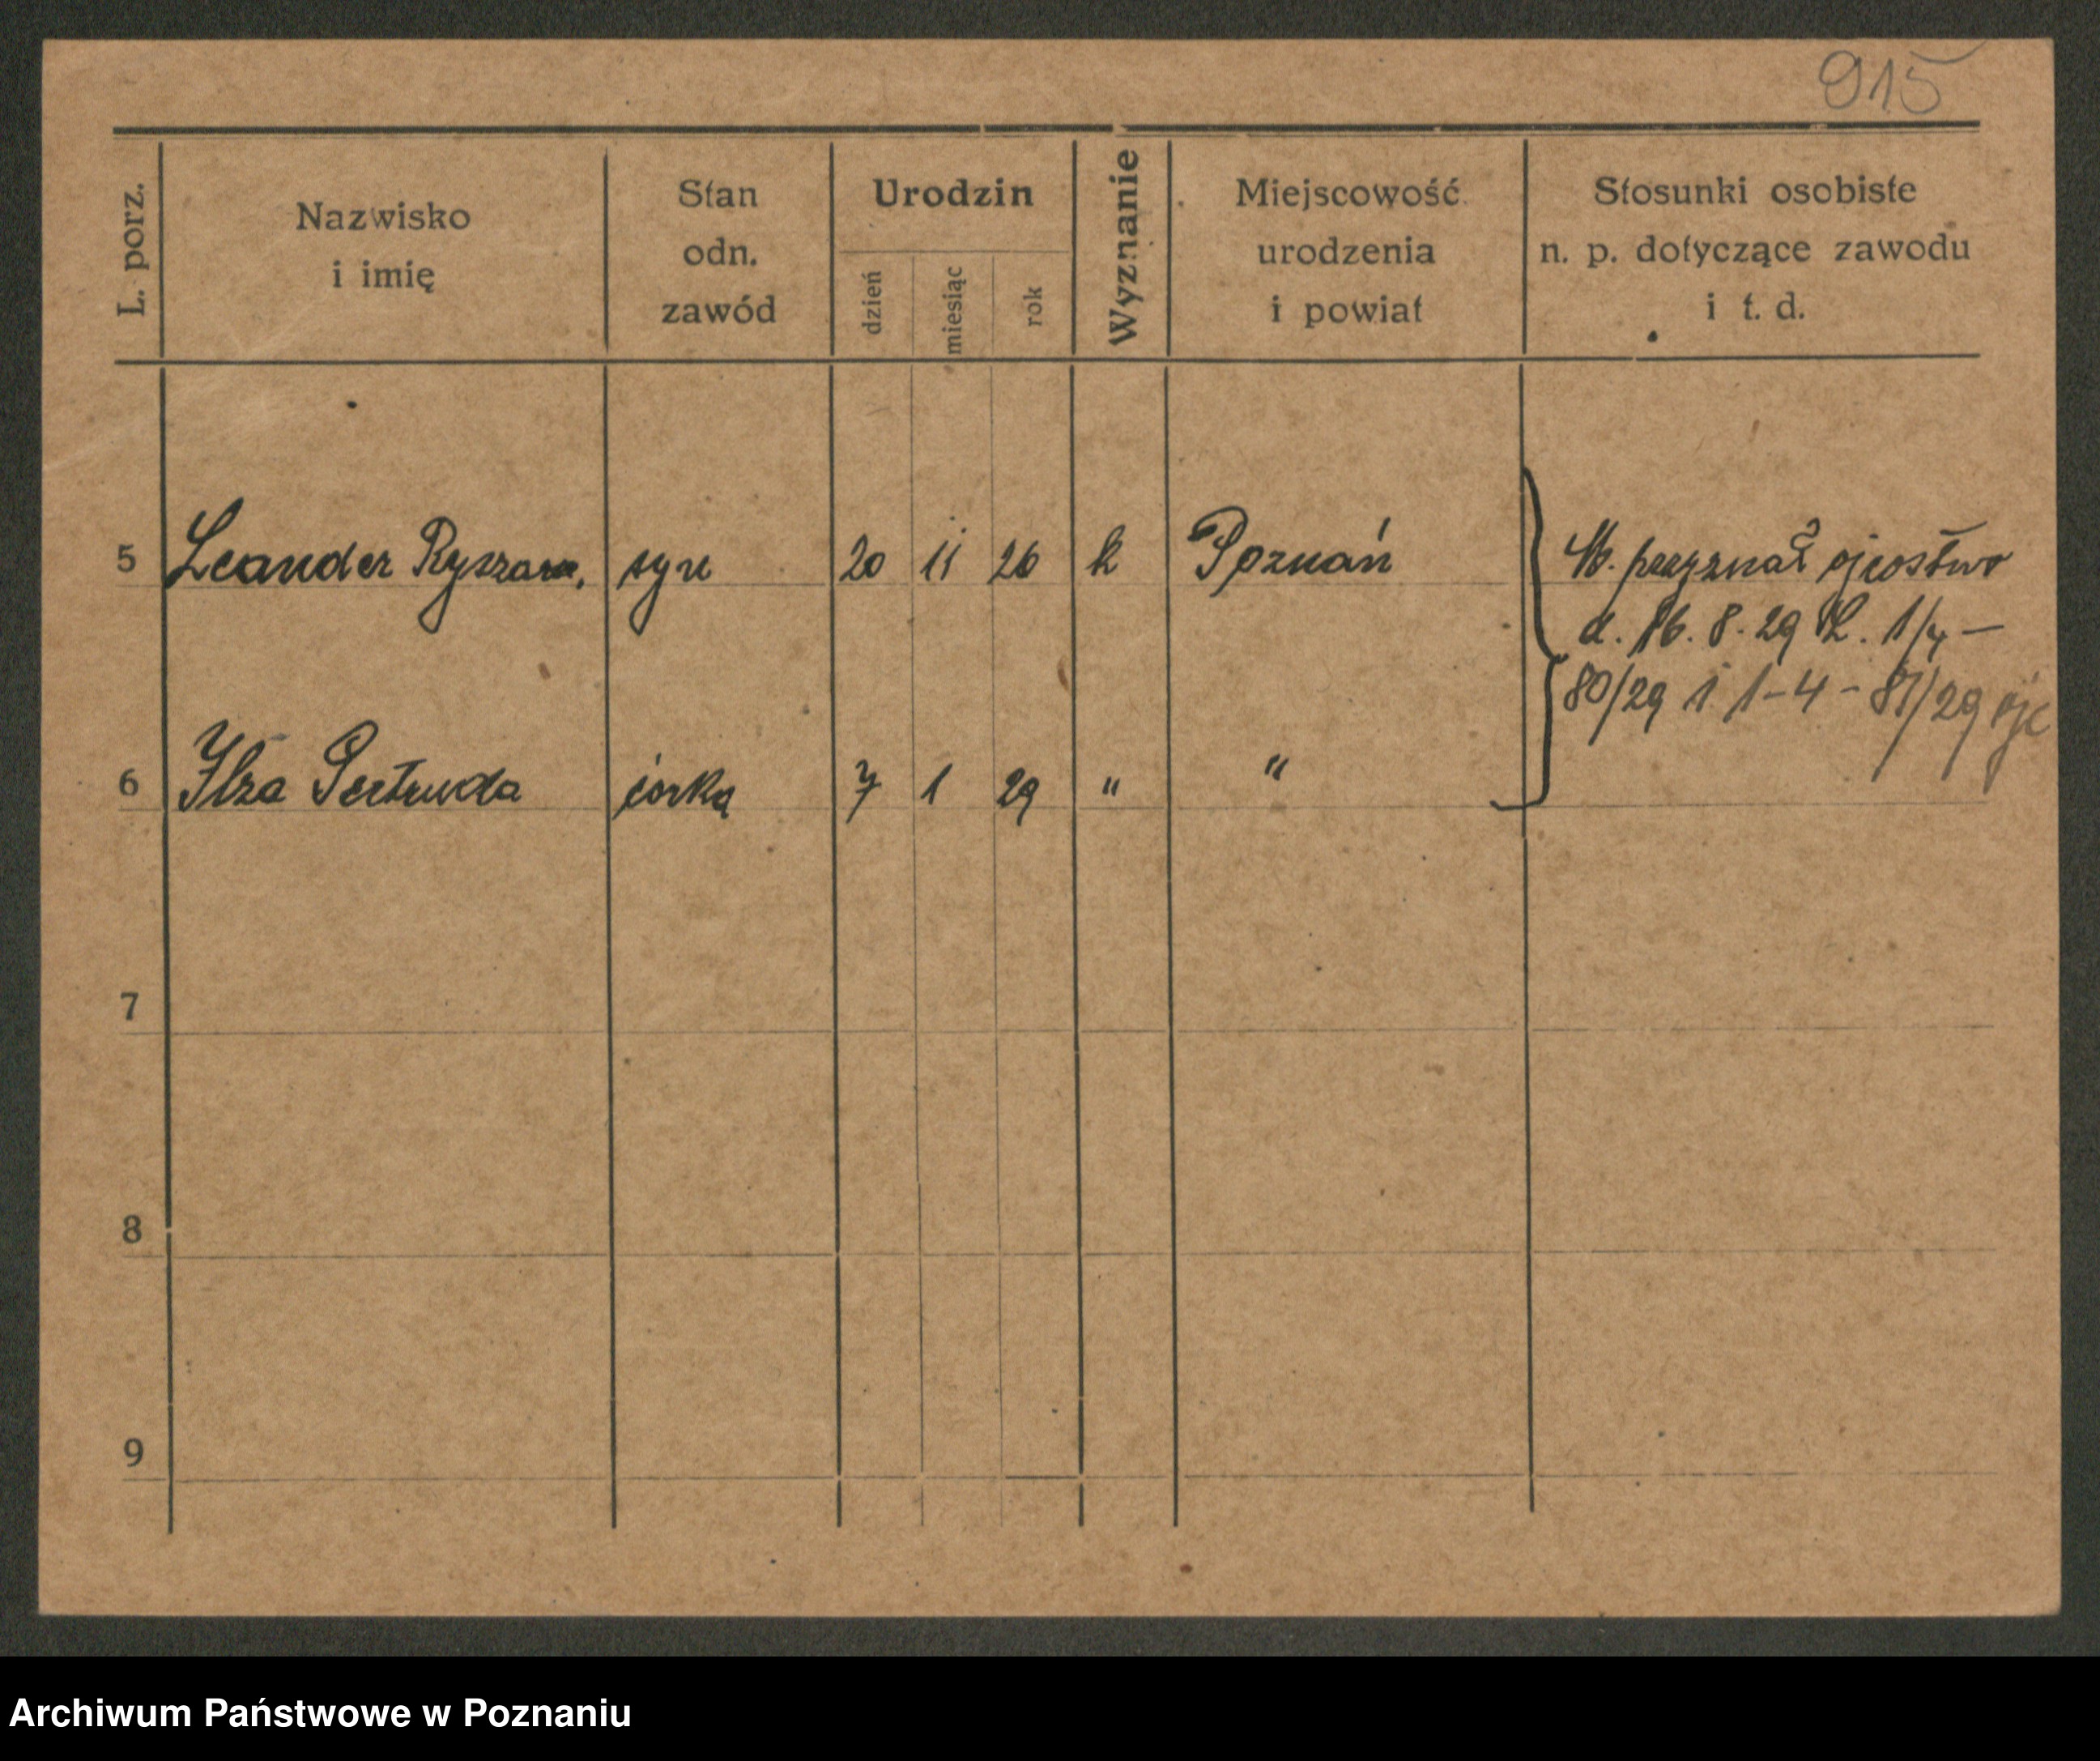 915
L. porz.
Nazwisko
i imię
Stan
odn.
zawód
Urodzin
dzień
miesiąc
rok
Wyznanie
Miejscowość
urodzenia
i powiat
Stosunki osobiste
n. p. dotyczące zawodu
i t. d.
5 Leander syn 20 11 26 k Poznań
przyznał ojcostwo
d. 16. 8. 29 L. 1/4 —
80/29 i 1-4-81/29 ojc
6 Ilza Gertruda córka 7 1 29 " "
7
8
9
Archiwum Państwowe w Poznaniu